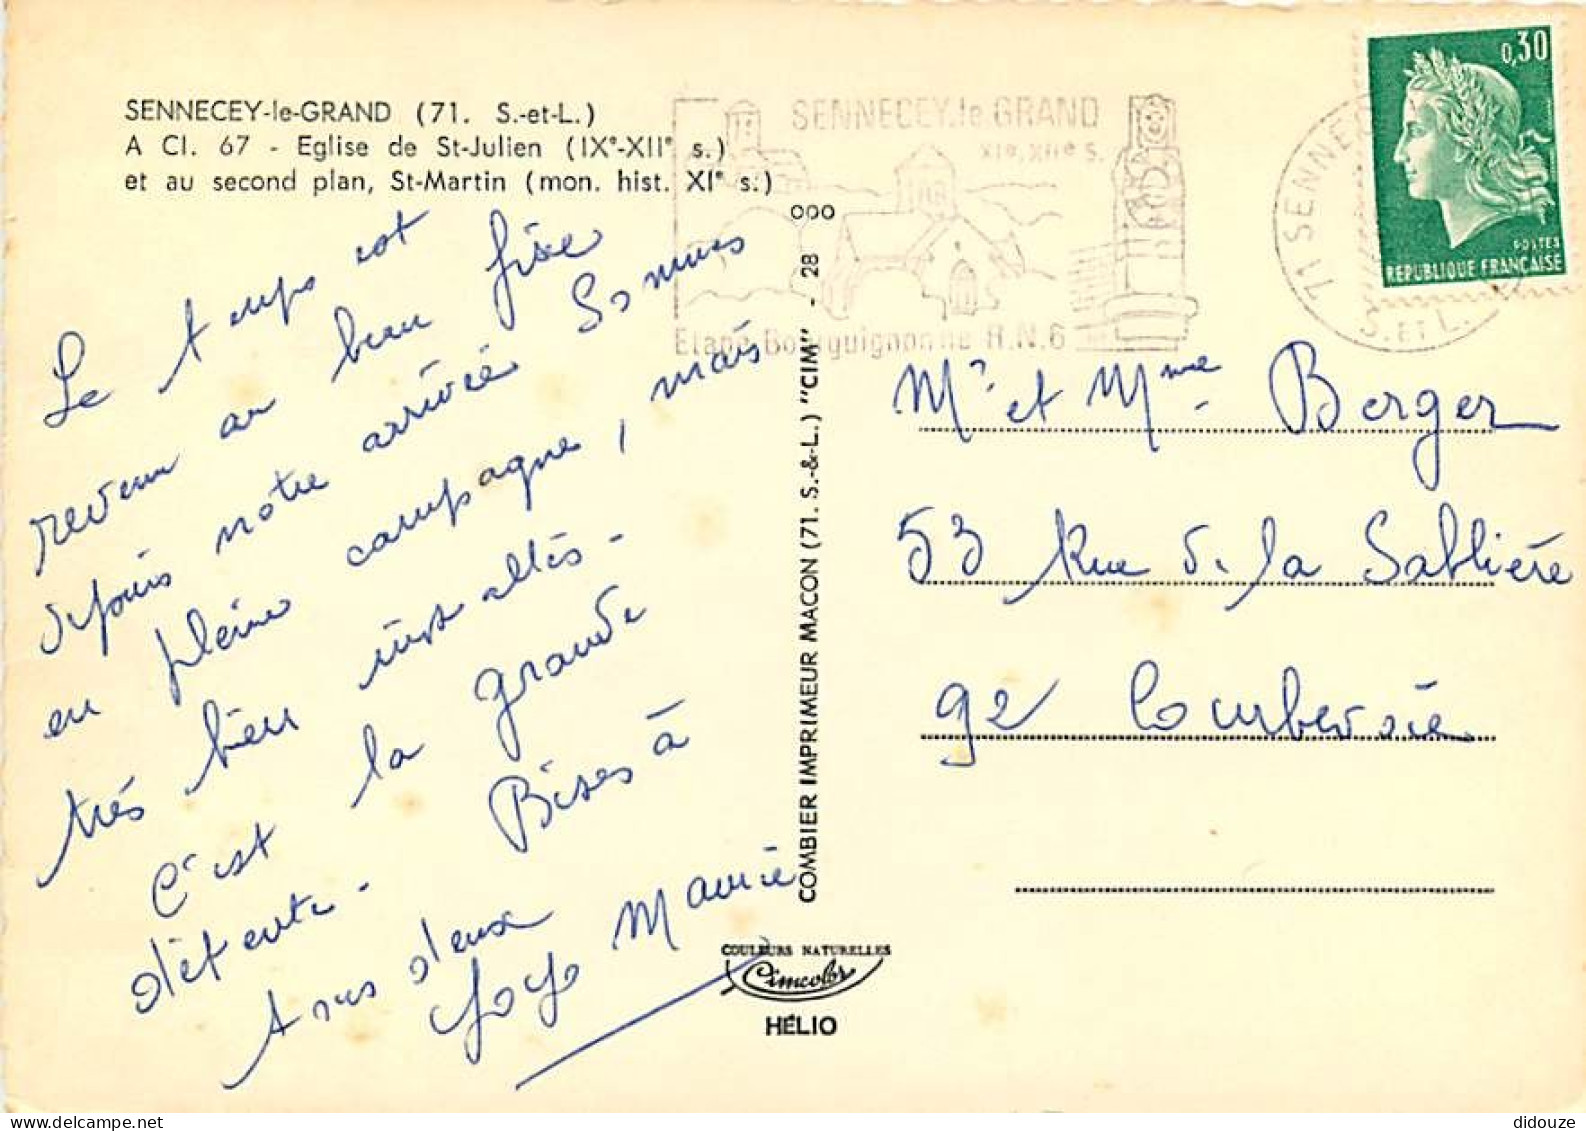 SENNECEY-le-GRAND (71. S.-et-L.)
A Cl. 67 - Eglise de St-Julien (IXe-XIIe s.)
et au second plan, St-Martin (mon. hist. XIe s.)
Le temps est
revenu au beau fixe
depuis notre arrivée Sommes
en pleine campagne, mais
très bien installés.
C'est la grande
détente. Bises à
tous deux
Yoyo Maurice
COMBIER IMPRIMEUR MACON (71. S.-&-L.) "CIM" - 28
ooo
COULEURS NATURELLES
Cimcolor
HÉLIO
SENNECEY-le-GRAND
XIe, XIIe S.
Etape Bourguignonne R.N.6
71 SENNECEY
S. ET L.
0,30
POSTES
REPUBLIQUE FRANÇAISE
Mr et Mme Berger
53 Rue de la Sablière
92 Courbevoie
didouze